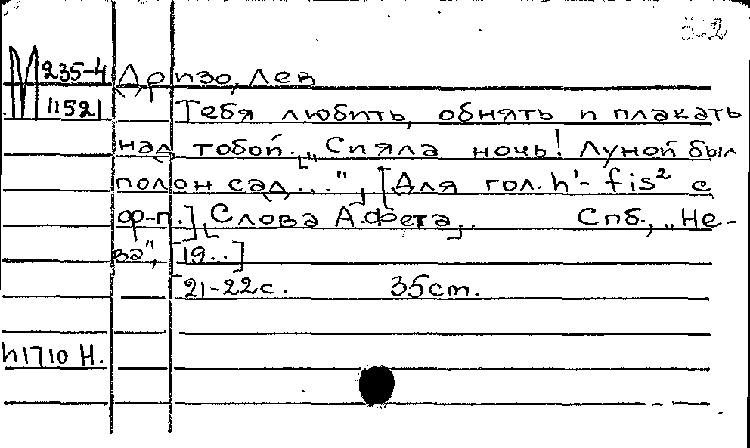 М 235-4 Дризо, Лев
11521 Тебя любить, обнять и плакать
над тобой. [„Сияла ночь! Луной был
полон сад..."] [Для гол. h¹- fis² с
ф-п.] [Слова А. Фета]. Спб., „Не-
ва", [19..]
21-22 с. 35 cm.
н1710 Н.